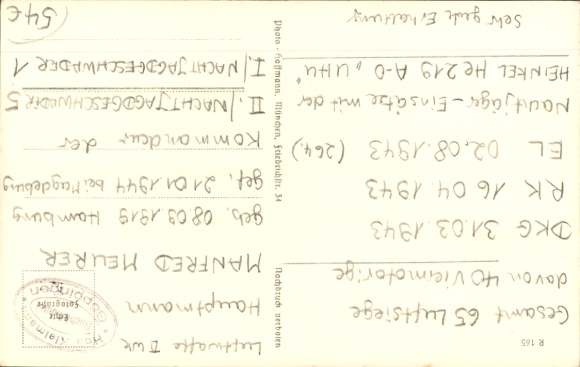 Luftwaffe II WK
Hauptmann
MANFRED MEURER
geb. 08 09 1919 Hamburg
gef. 21 01 1944 bei Magdeburg
Kommandeur der
II./NACHTJAGDGESCHWADER 5
I./NACHTJAGDGESCHWADER 1
54€
R 165
Gesamt 65 Luftsiege
davon 40 Viermotorige
DKG 31.03.1943
RK 16 04.1943
EL 02.08.1943 (264.)
Nachtjäger-Einsätze mit der
HEINKEL He 219 A-0 „UHU"
Sehr gute Erhaltung
Photo-Hoffmann, München, Friedrichstr. 34
Nachdruck verboten
Echte
Fotografie
Göppingen